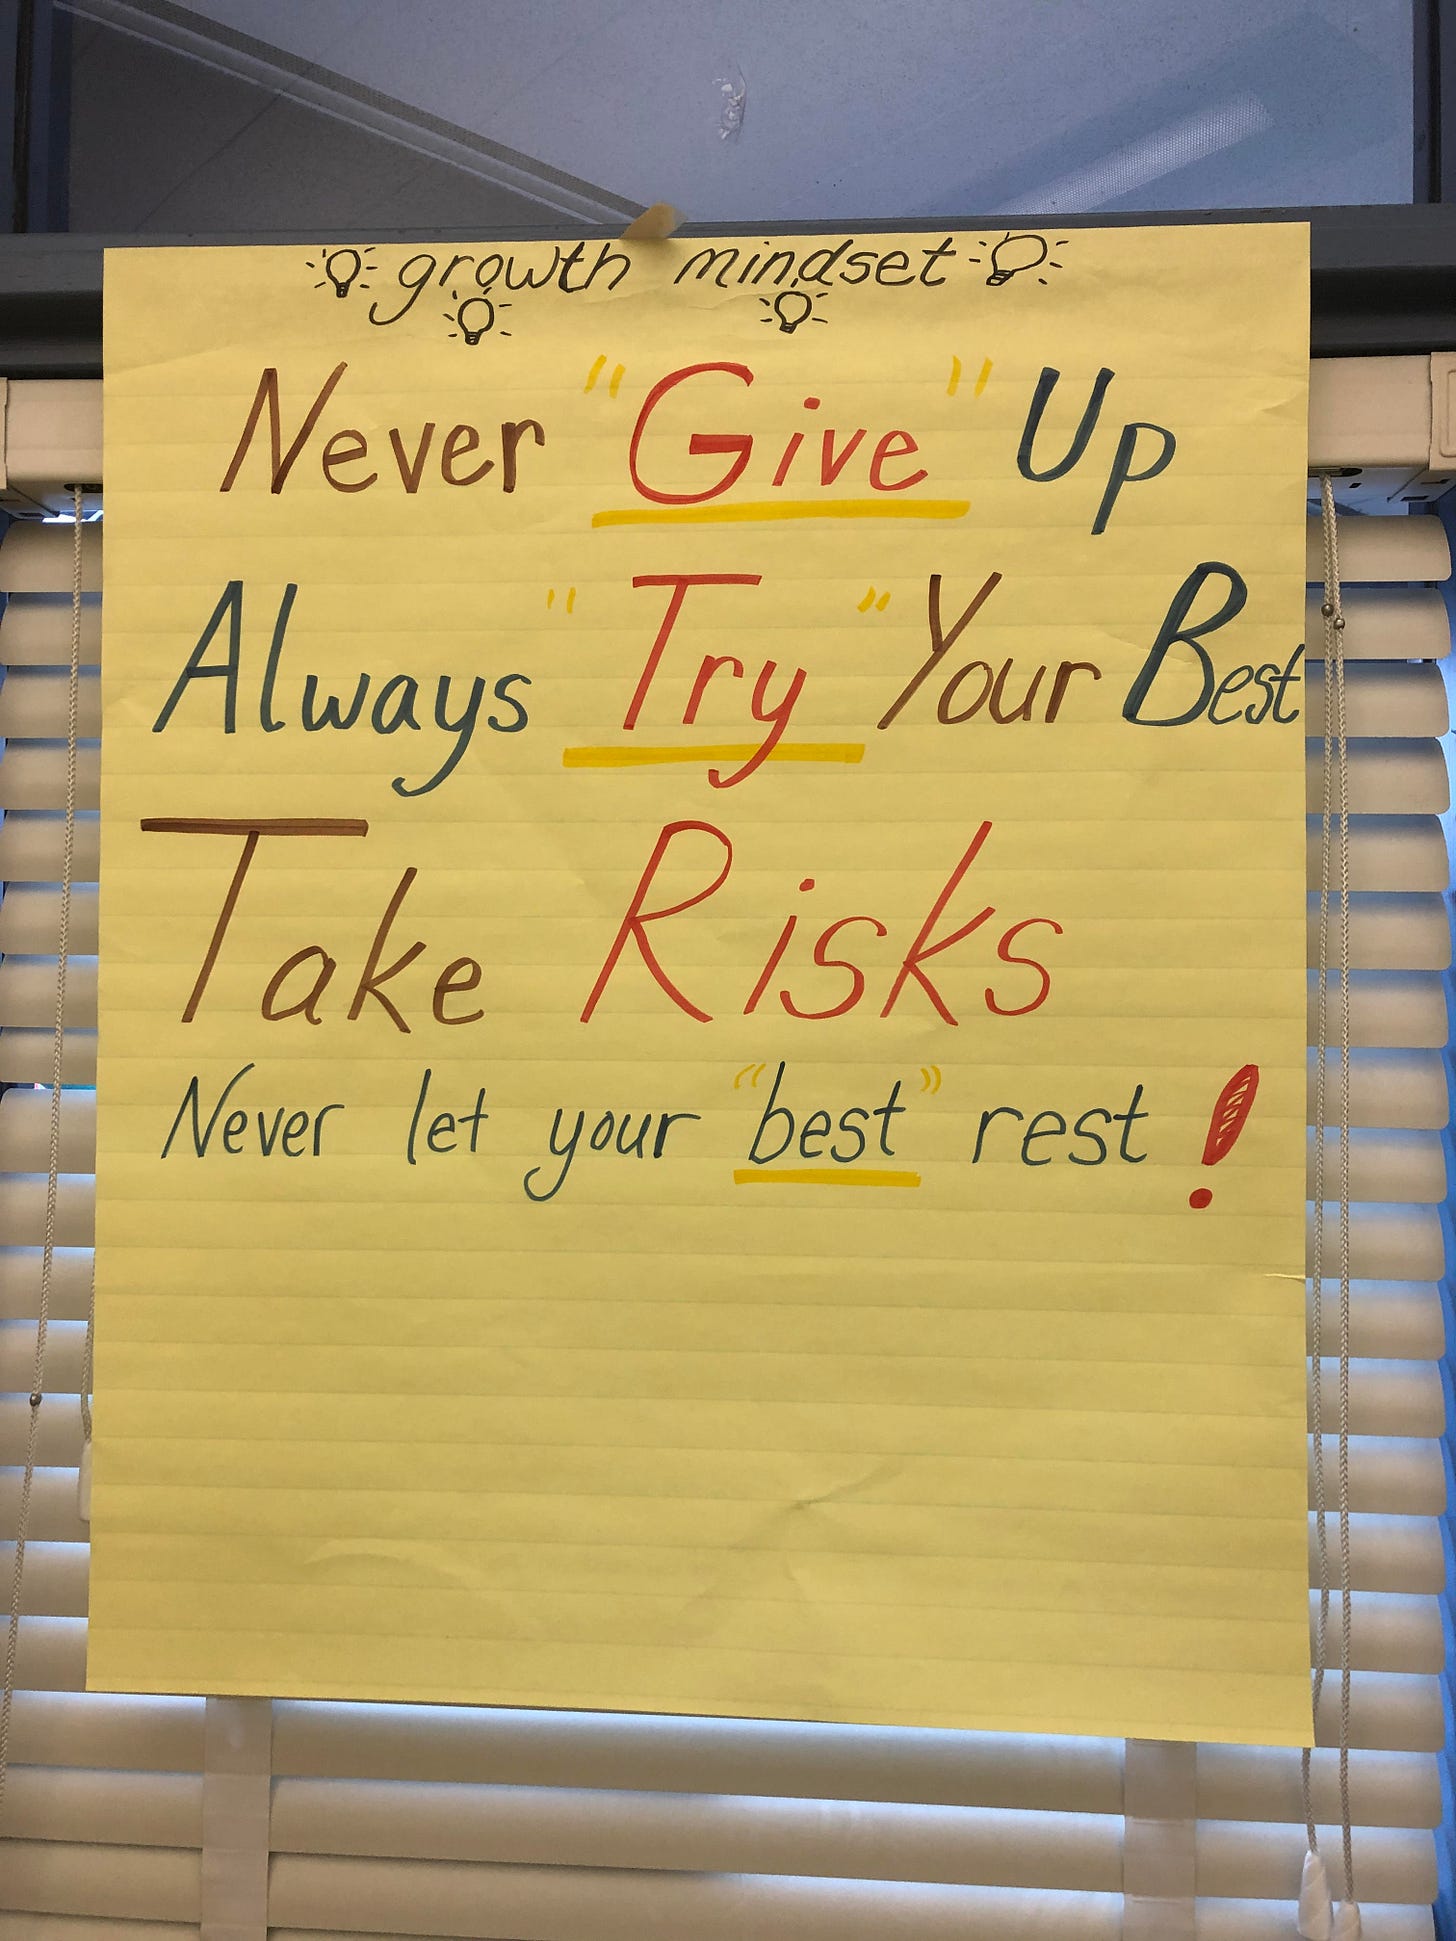 growth mindset
Never "Give" Up
Always "Try" Your Best
Take Risks
Never let your "best" rest!